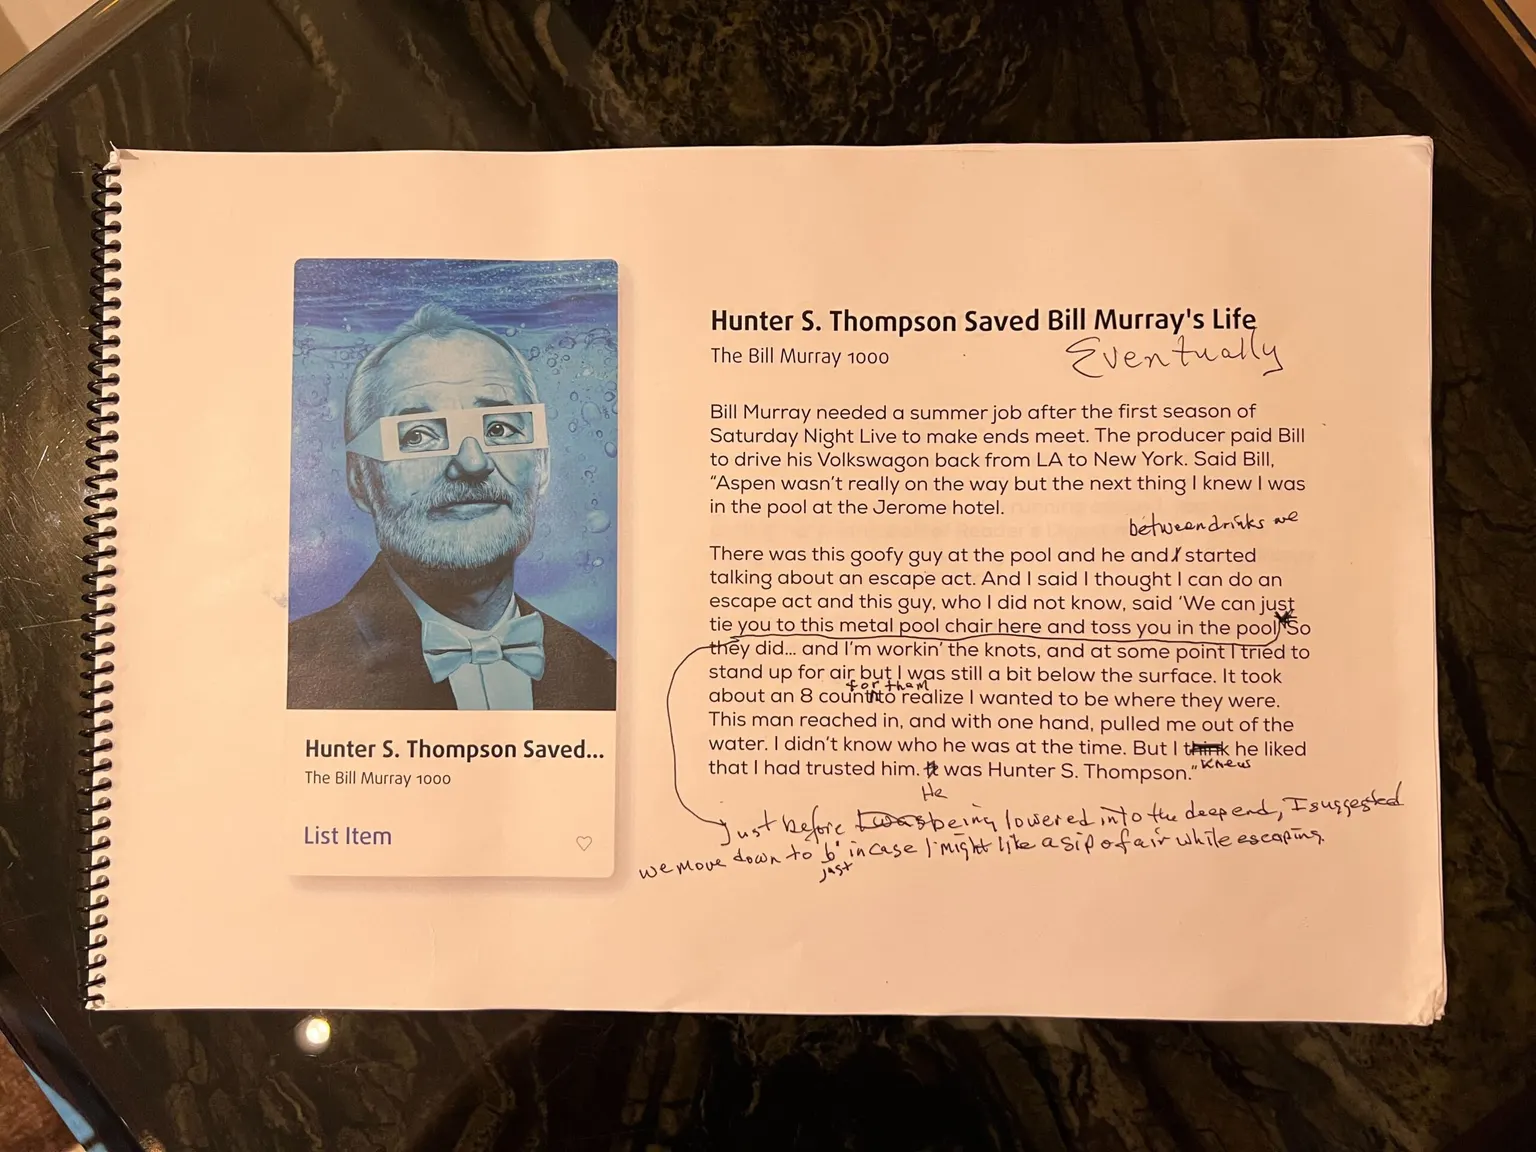 Hunter S. Thompson Saved...
The Bill Murray 1000
List Item
Hunter S. Thompson Saved Bill Murray's Life
The Bill Murray 1000
Eventually
Bill Murray needed a summer job after the first season of
Saturday Night Live to make ends meet. The producer paid Bill
to drive his Volkswagon back from LA to New York. Said Bill,
“Aspen wasn't really on the way but the next thing I knew I was
in the pool at the Jerome hotel.
between drinks we
There was this goofy guy at the pool and he and I started
talking about an escape act. And I said I thought I can do an
escape act and this guy, who I did not know, said ‘We can just
tie you to this metal pool chair here and toss you in the pool.’ So
they did... and I'm workin' the knots, and at some point I tried to
stand up for air but I was still a bit below the surface. It took
for them
about an 8 count to realize I wanted to be where they were.
This man reached in, and with one hand, pulled me out of the
water. I didn't know who he was at the time. But I think he liked
knew
that I had trusted him. It was Hunter S. Thompson.”
He
Just before I was being lowered into the deep end, I suggested
we move down to 6' in case I might like a sip of air while escaping.
just